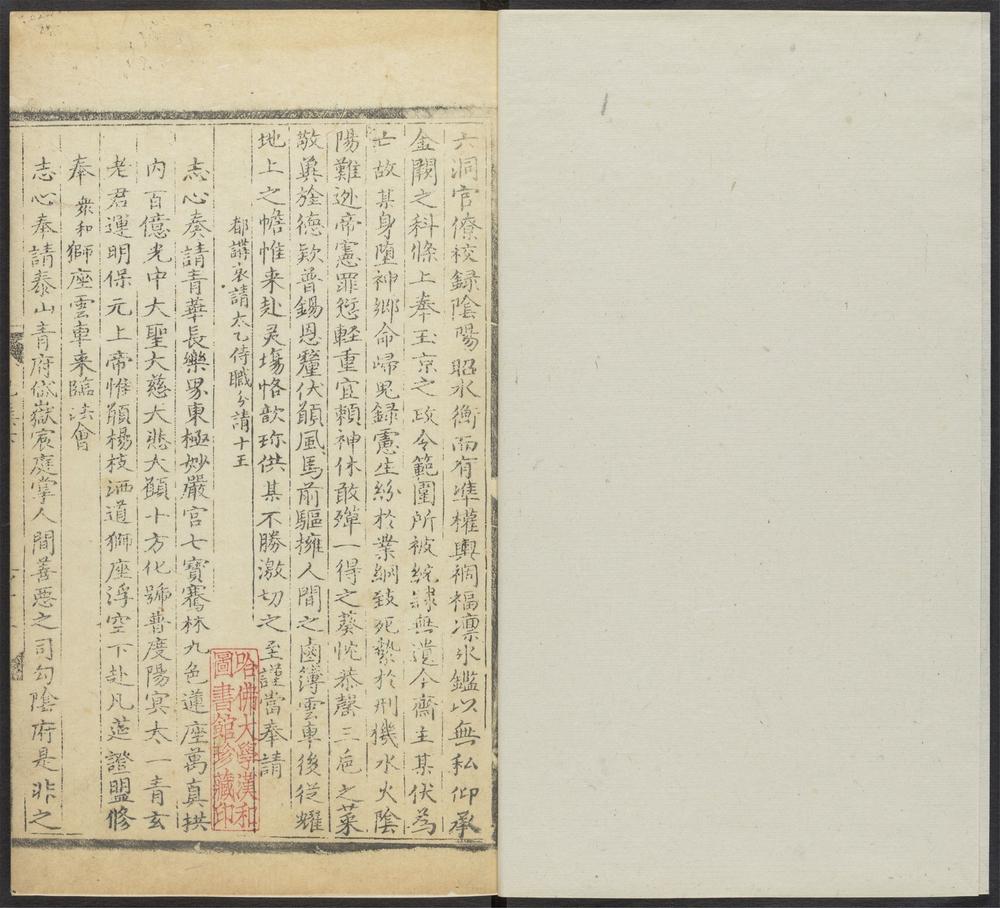 六洞官僚校録陰陽昭水衡而有準權輿禍福凛氷鑑以無私仰承
金闕之科條上奉玉京之政令範圍所被統隷無遺今齋主某伏爲
亡故某身墮神鄉命歸鬼録憲生紛於業網致死縶於刑機水火陰
陽難逃帝憲罪愆軽重宜頼神休敢殫一得之葵忱恭罄三卮之菓
敬奠旌德欵普錫恩釐伏願風馬前驅擁人間之鹵簿雲車後從耀
地上之幨帷来赴灵塲恪歆珎供某不勝激切之至謹當奉請
都講衣請太乙侍職分請十王
志心奏請青華長樂界東極妙嚴宮七寶騫林九色蓮座萬真拱
内百億光中大聖大慈大悲大願十方化號普度陽冥太一青玄
老君運明保元上帝惟願楊枝洒道獅座浮空下赴凡筵證盟修
奉 衆和獅座雲車来臨法會
志心奉請泰山青府岱嶽㝠庭掌人間善惡之司勾陰府是非之
哈佛大學漢和
圖書館珍藏印